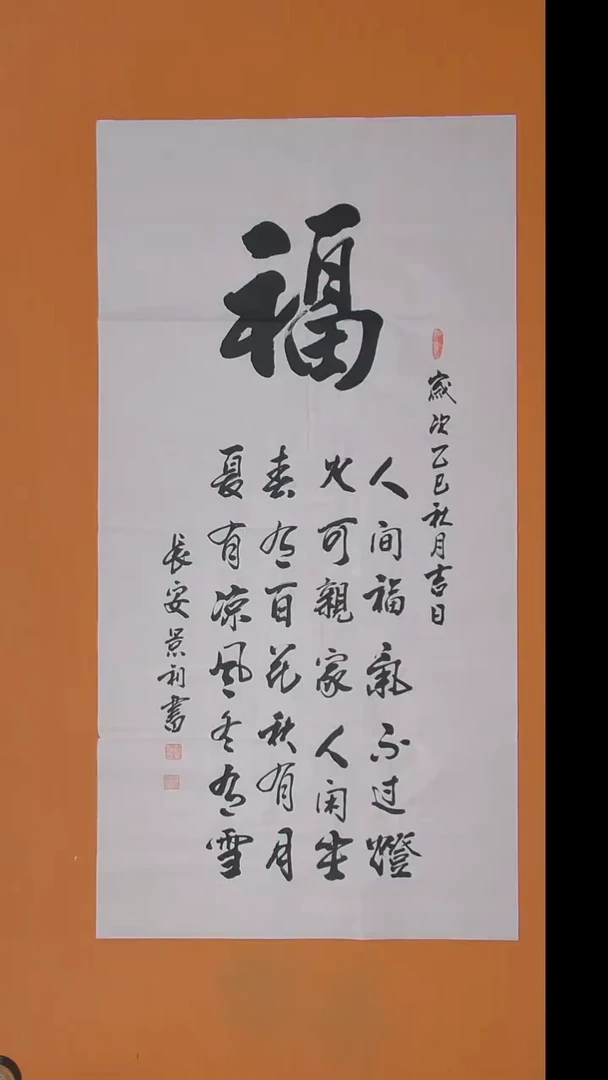 福
歲次乙巳秋月吉日
人间福氣不过燈
火可親家人闲坐
春有百花秋有月
夏有凉风冬有雪
長安景利書